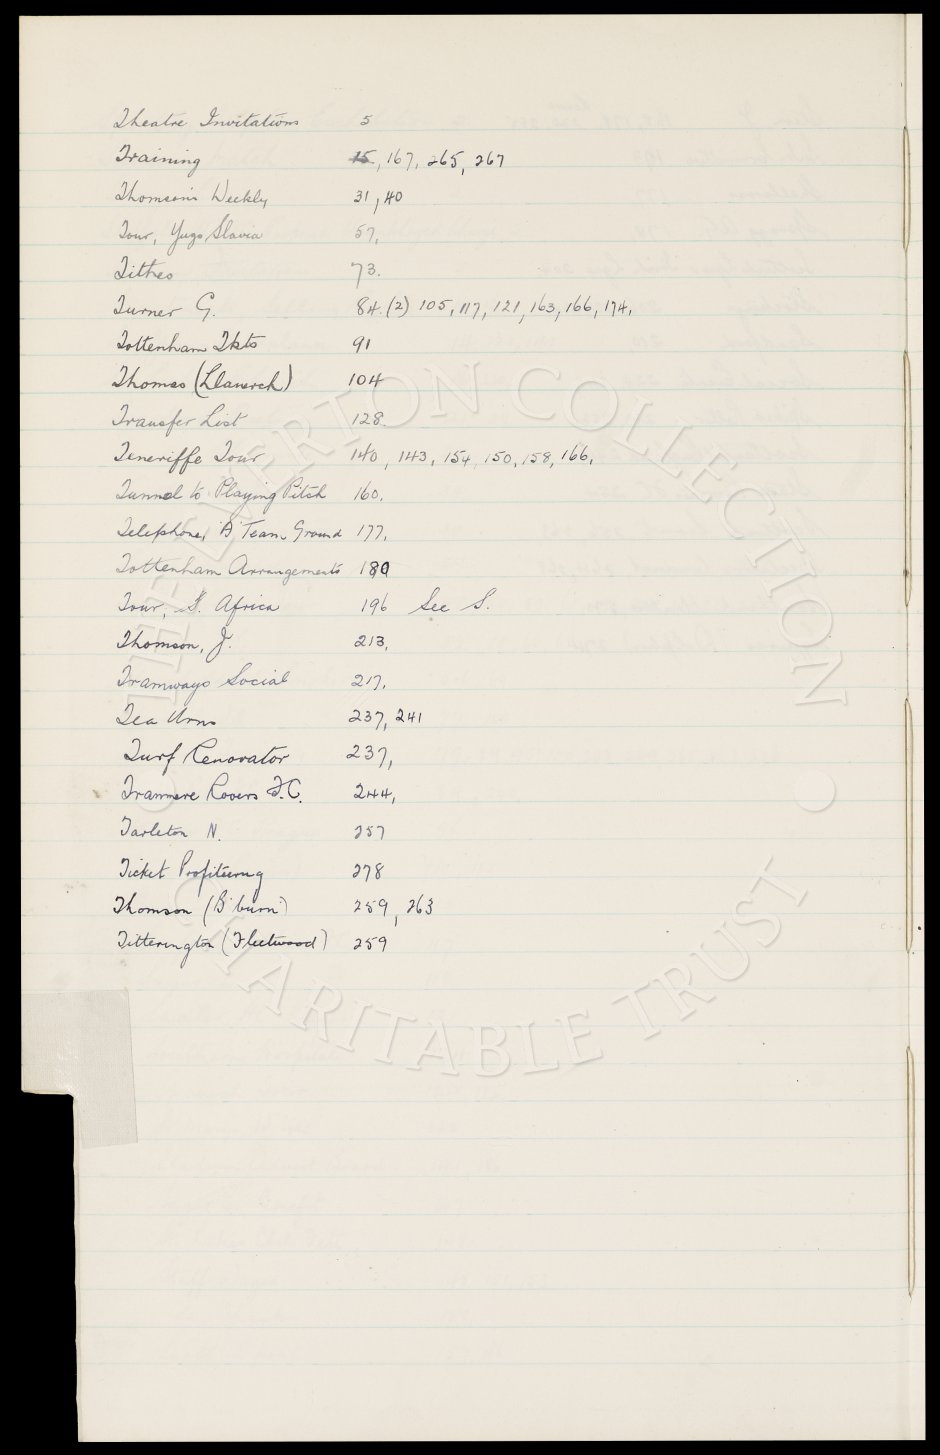 Theatre Invitations 5
Training 15, 167, 265, 267
Thomson's Weekly 31, 40
Tour, Yugo Slavia 57,
Tithes 73.
Turner G. 84. (2) 105, 117, 121, 163, 166, 174,
Tottenham Tkts 91
Thomas (Llanerch) 104
Transfer List 128.
Teneriffe Tour 140, 143, 154, 150, 158, 166,
Tunnel to Playing Pitch 160.
Telephone, 'A' Team Ground 177,
Tottenham Arrangements 189
Tour, S. Africa 196 See S.
Thomson, J. 213,
Tramways Social 217,
Tea Urns 237, 241
Turf Renovator 237,
Tranmere Rovers F.C. 244,
Tarleton N. 257
Ticket Profiteering 278
Thomson (B'burn) 259, 263
Titterington (Fleetwood) 259
THE EVERTON COLLECTION
CHARITABLE TRUST